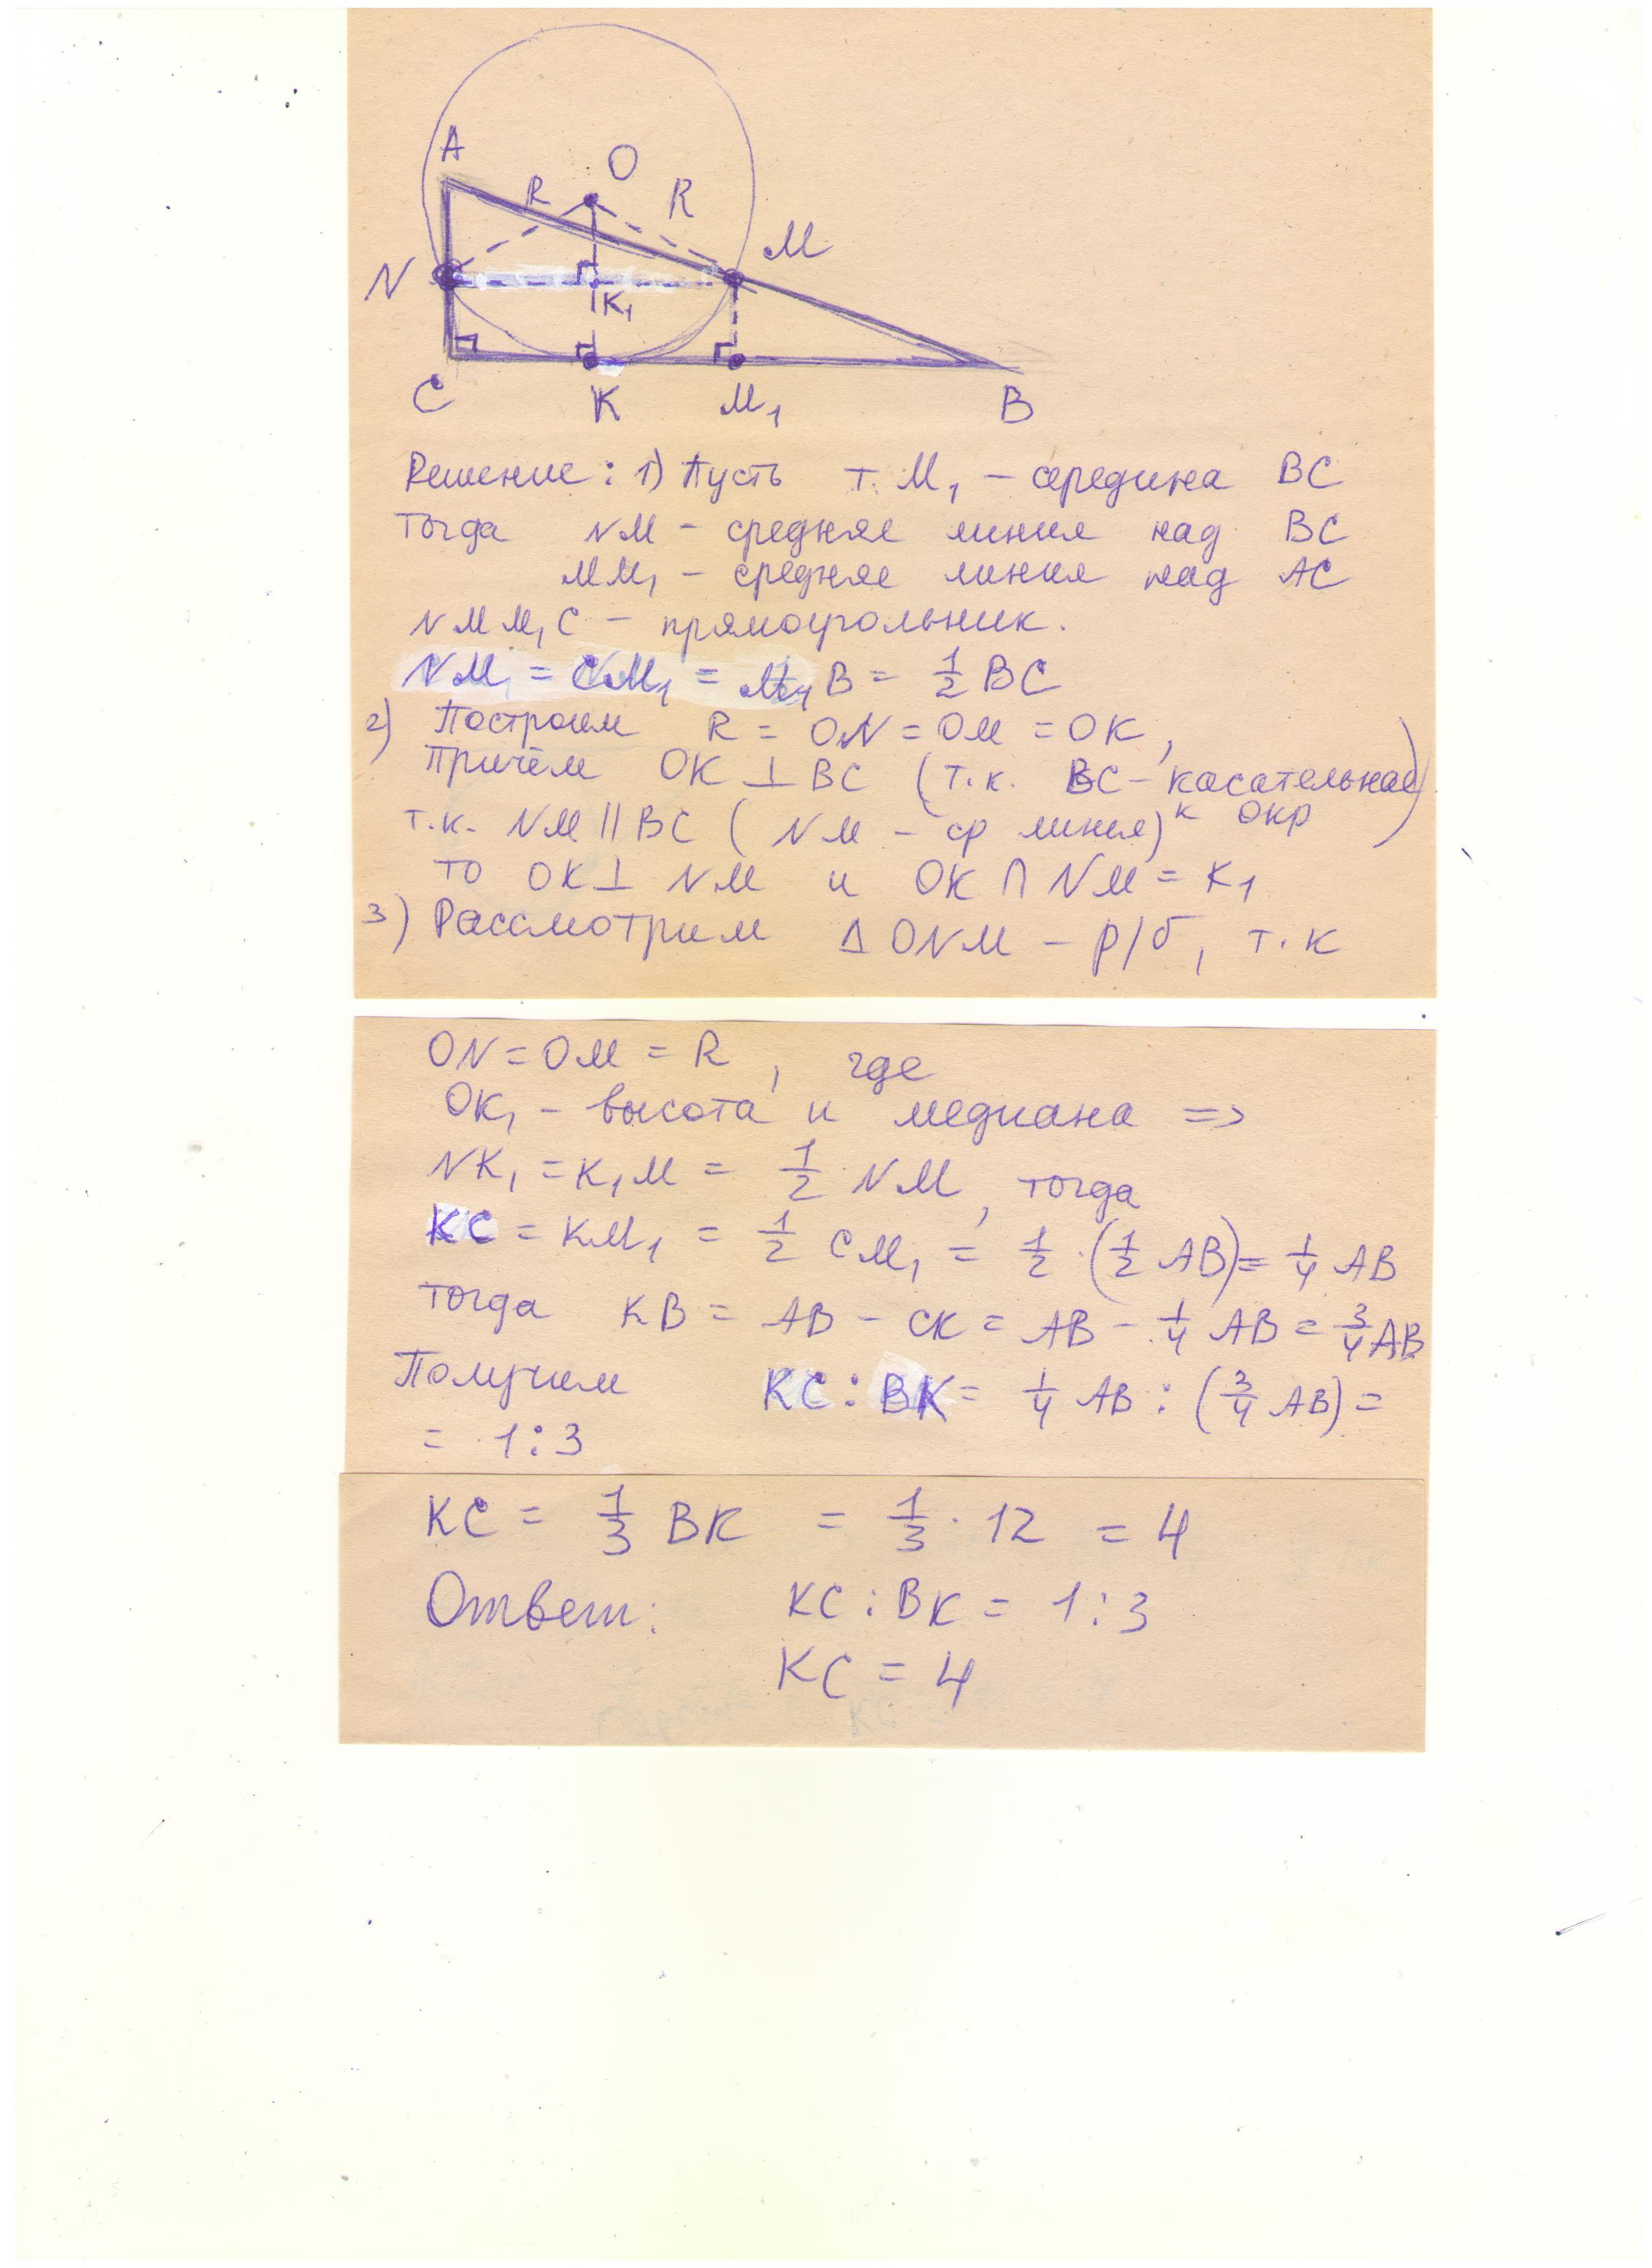 A
O
R
R
M
N
K₁
C
K
M₁
B
Решение: 1) Пусть т. M₁ – середина BC
тогда NM – средняя линия над BC
MM₁ – средняя линия над AC
NMM₁C – прямоугольник.
NM = CM₁ = M₁B = 1/2 BC
2) Построим R = ON = OM = OK,
Причём OK ⊥ BC (т.к. BC – касательная
к окр)
т.к. NM || BC (NM – ср линия)
то OK ⊥ NM и OK ∩ NM = K₁
3) Рассмотрим Δ ONM – р/б, т.к
ON = OM = R, где
OK₁ – высота и медиана =>
NK₁ = K₁M = 1/2 NM, тогда
KC = KM₁ = 1/2 CM₁ = 1/2 · (1/2 AB) = 1/4 AB
тогда KB = AB – CK = AB – 1/4 AB = 3/4 AB
Получим KC : BK = 1/4 AB : (3/4 AB) =
= 1:3
KC = 1/3 BK = 1/3 · 12 = 4
Ответ: KC : BK = 1:3
KC = 4